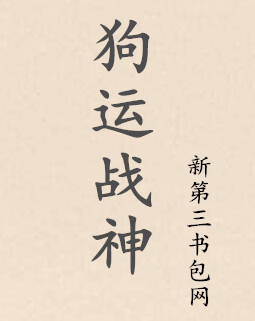 狗运战神
新第三书包网